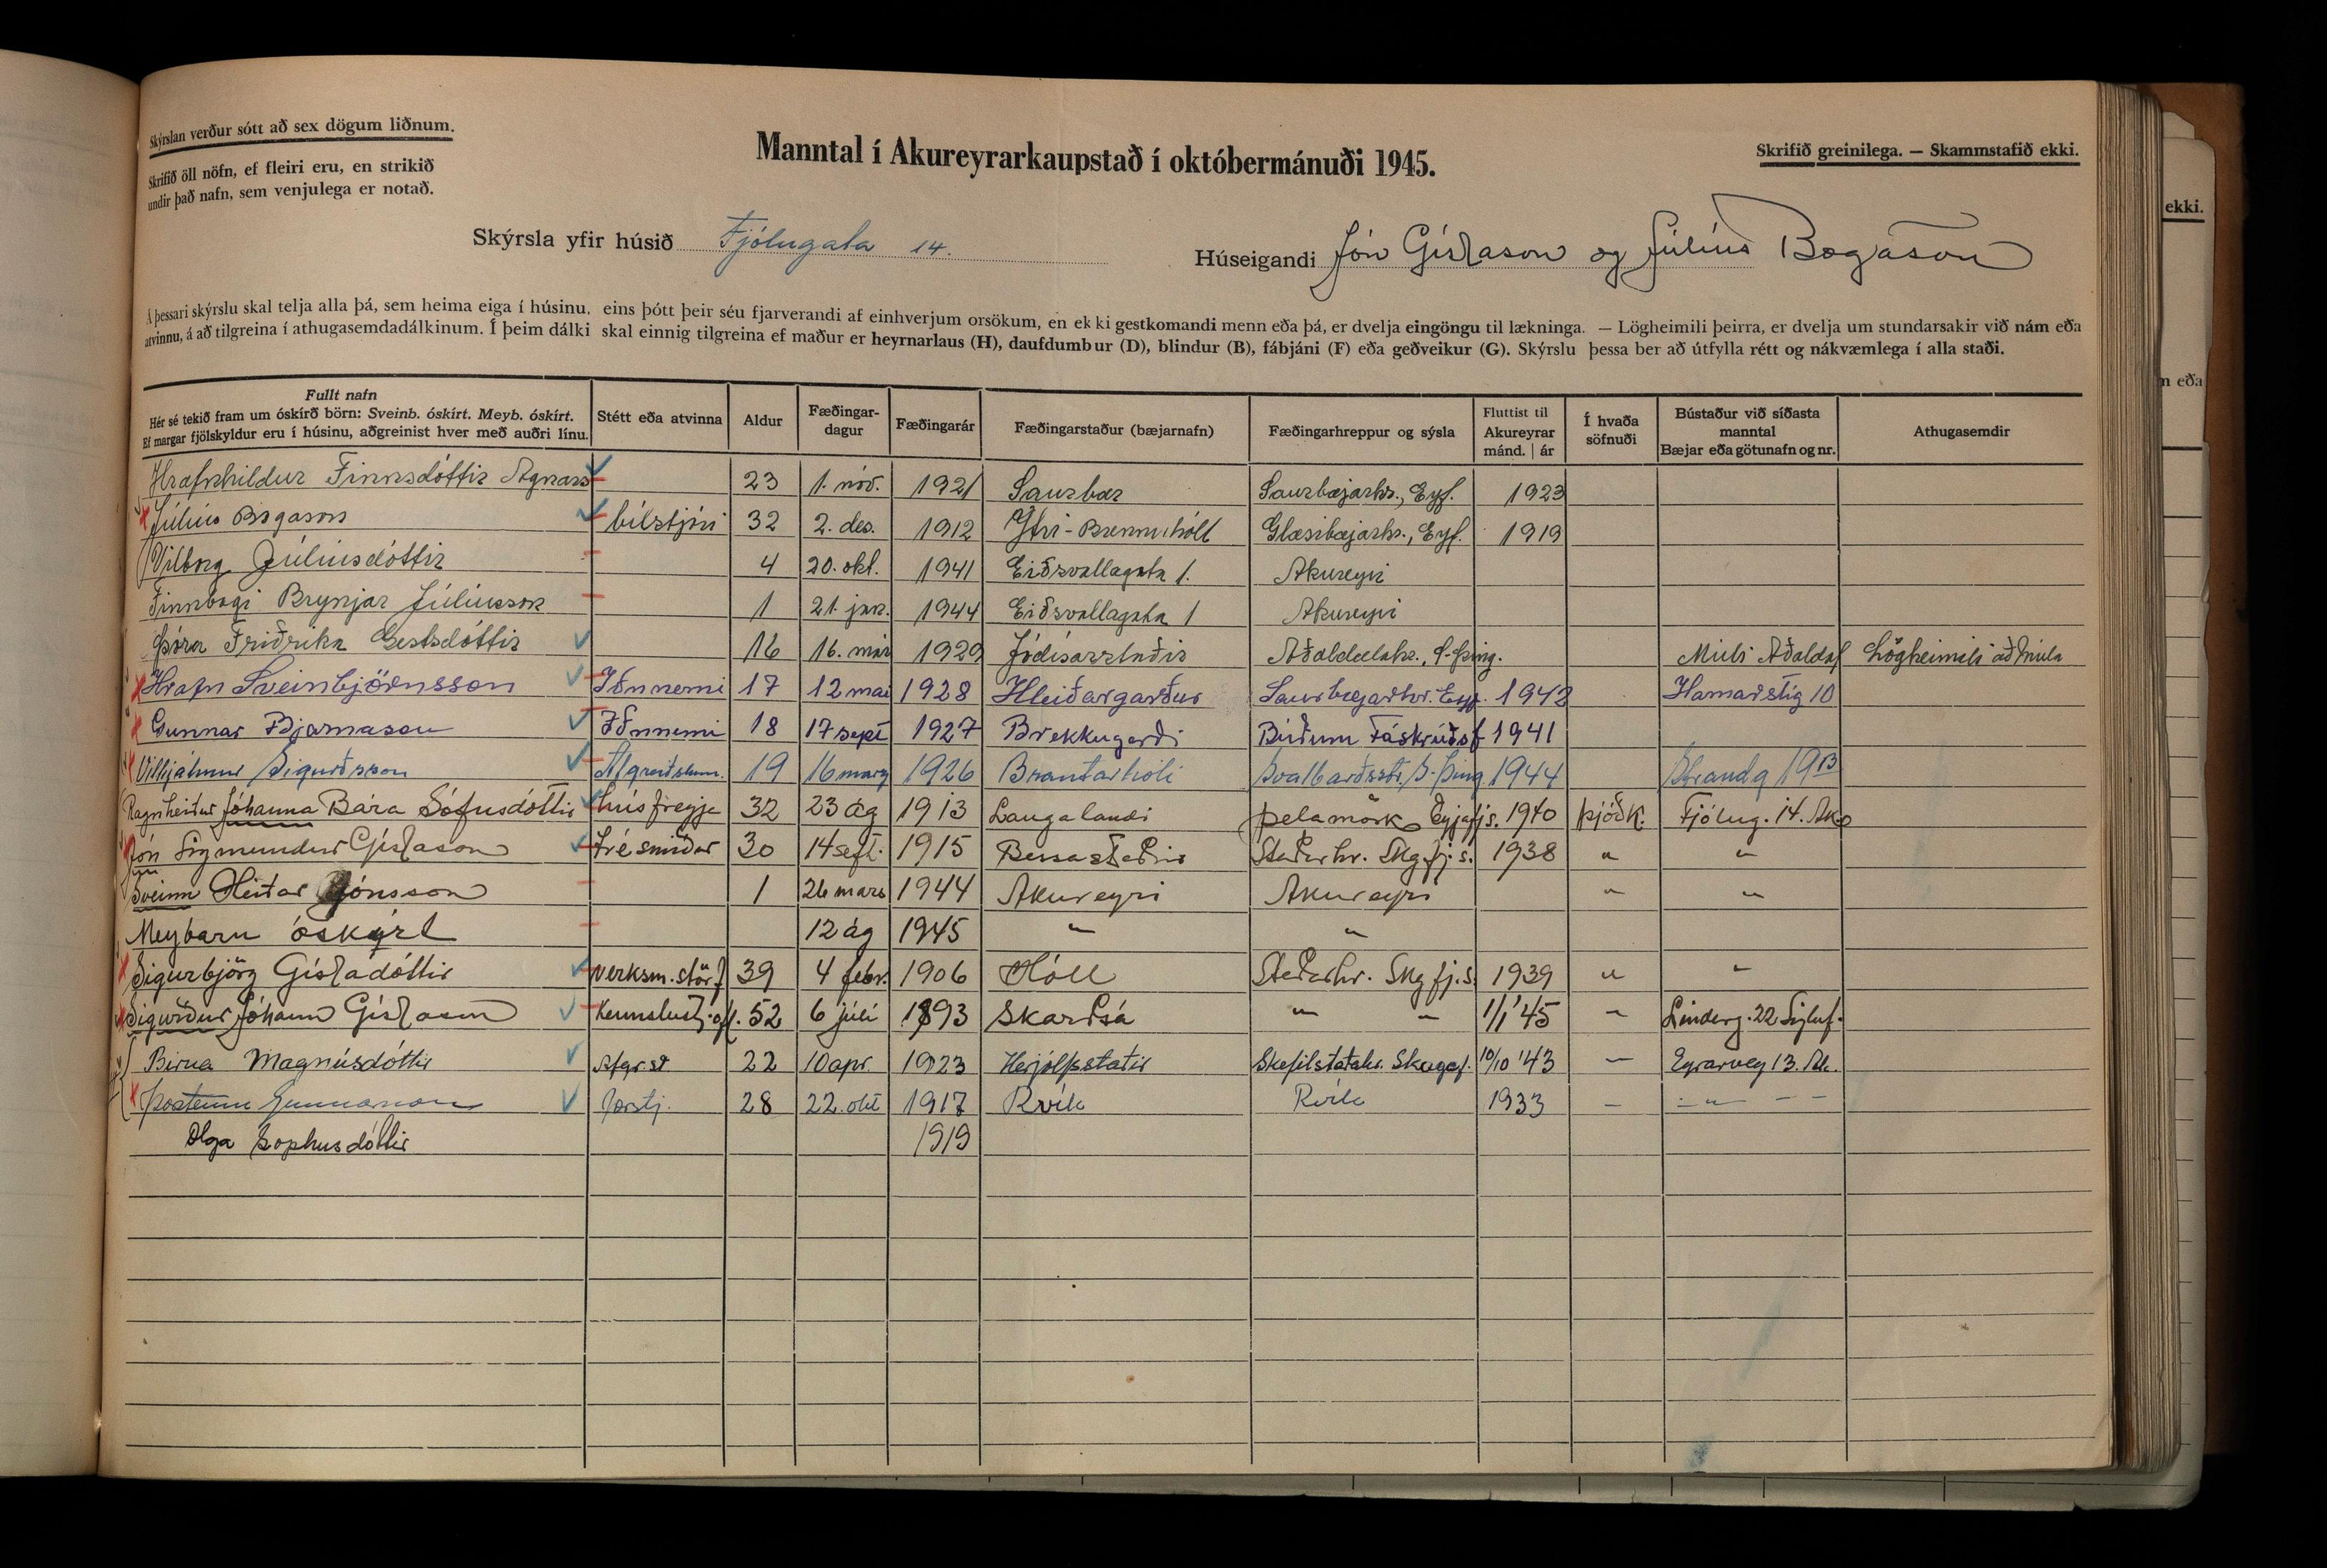 Skýrslan verður sótt að sex dögum liðnum.
Skrifið öll nöfn, ef fleiri eru, en strikið
undir það nafn, sem venjulega er notað.
Manntal í Akureyrarkaupstað í októbermánuði 1945.
Skrifið greinilega. — Skammstafið ekki.
Skýrsla yfir húsið Fjólugata 14.
Húseigandi Jón Gíslason og Júlíus Bogason
Á þessari skýrslu skal telja alla þá, sem heima eiga í húsinu, eins þótt þeir séu fjarverandi af einhverjum orsökum, en ekki gestkomandi menn eða þá, er dvelja eingöngu til lækninga. — Lögheimili þeirra, er dvelja um stundarsakir við nám eða
atvinnu, á að tilgreina í athugasemdadálkinum. Í þeim dálki skal einnig tilgreina ef maður er heyrnarlaus (H), daufdumbur (D), blindur (B), fábjáni (F) eða geðveikur (G). Skýrslu þessa ber að útfylla rétt og nákvæmlega í alla staði.
Fullt nafn
Hér sé tekið fram um óskírð börn: Sveinb. óskírt. Meyb. óskírt.
Ef margar fjölskyldur eru í húsinu, aðgreinist hver með auðri línu.
Stétt eða atvinna
Aldur
Fæðingar-
dagur
Fæðingarár
Fæðingarstaður (bæjarnafn)
Fæðingarhreppur og sýsla
Fluttist til
Akureyrar
mánd. | ár
Í hvaða
söfnuði
Bústaður við síðasta
manntal
Bæjar eða götunafn og nr.
Athugasemdir
Hrafnhildur Finnsdóttir Agnars 23 1. nóv. 1921 Saurbær Saurbæjarhr., Eyf. 1923
Júlíus Bogason bílstjóri 32 2. des. 1912 Ytri-Brennihóll Glæsibæjarhr., Eyf. 1919
Vilborg Júlíusdóttir 4 20. okt. 1941 Eiðsvallagata 1. Akureyri
Finnbogi Brynjar Júlíusson 1 21. jan. 1944 Eiðsvallagata 1 Akureyri
Þóra Friðrika Gestsdóttir 16 16. maí 1929 Jódísarstaðir Aðaldælahr., S-Þing. Múli Aðaldal Lögheimili að Múla
Hrafn Sveinbjörnsson Iðnnemi 17 12 maí 1928 Hleiðargarður Saurbæjarhr. Eyf. 1942 Hamarstíg 10
Gunnar Bjarnason Iðnnemi 18 17 sept 1927 Brekkugerði Búðum Fáskrúðsf 1941
Vilhjálmur Sigurðsson Afgreiðslum. 19 16 marz 1926 Brautarhóli Svalbarðsstr. S-Þing 1944 Strandg 19
Ragnheiður Jóhanna Bára Sófusdóttir húsfreyja 32 23 ág 1913 Laugalandi Þelamörk Eyjafjs. 1940 Þjóðk. Fjólug. 14. Ak
Jón Sigmundur Gíslason trésmiður 30 14 sept. 1915 Bessastaðir Staðarhr. Skgfj.s. 1938 " "
Sveinn Heiðar Jónsson 1 26 mars 1944 Akureyri Akureyri " "
Meybarn óskýrt 12 ág 1945 " "
Sigurbjörg Gísladóttir verksm.störf 39 4 febr. 1906 Hóll Staðarhr. Skgfj.s. 1939 " "
Sigurður Jóhann Gíslason 52 6 júlí 1893 Skarðsá " " 1/1 '45 " Linderg. 22 Sigluf.
Birna Magnúsdóttir Afgr.st 22 10 apr. 1923 Herjólfsstaðir Skefilsstaðahr. Skagaf. 10/10 '43 — Eyrarveg 13. Ak.
Þorsteinn Gunnarsson forstj. 28 22. okt 1917 Rvík Rvík 1933 — — " — —
Olga Sophusdóttir 1919
ekki.
n eða